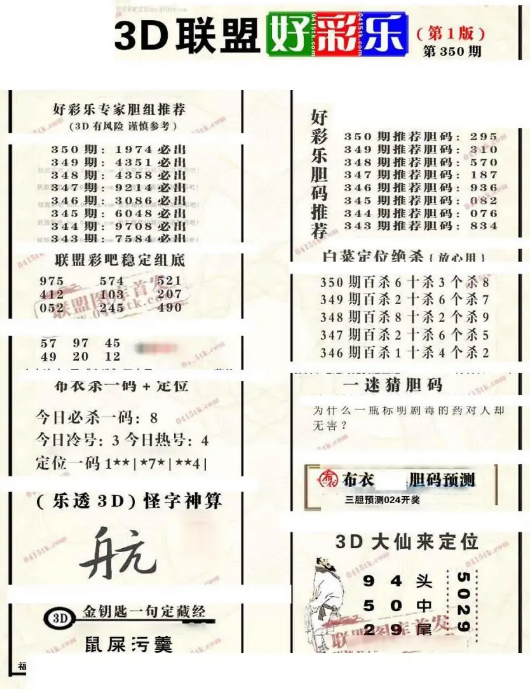 3D联盟好彩乐
(第1版)
第350期
好彩乐专家胆组推荐
(3D有风险 谨慎参考)
350期: 1974必出
349期: 4351必出
348期: 4358必出
347期: 9214必出
346期: 3086必出
345期: 6048必出
344期: 9708必出
343期: 7584必出
联盟彩吧稳定组底
975 574 521
412 103 207
052 245 490
57 97 45
49 20 12
布衣杀一码+定位
今日必杀一码: 8
今日冷号: 3 今日热号: 4
定位一码 1**|*7*|**4|
(乐透3D) 怪字神算
航
3D 金钥匙一句定藏经
鼠屎污羹
福
好彩乐胆码推荐
350期推荐胆码: 295
349期推荐胆码: 310
348期推荐胆码: 570
347期推荐胆码: 187
346期推荐胆码: 936
345期推荐胆码: 082
344期推荐胆码: 076
343期推荐胆码: 834
白菜定位绝杀 (放心用)
350期百杀6十杀3个杀8
349期百杀2十杀7个杀1
348期百杀8十杀2个杀9
347期百杀2十杀6个杀5
346期百杀1十杀4个杀2
一迷猜胆码
为什么一瓶标明剧毒的药对人却
无害?
布衣 胆码预测
三胆预测024开奖
3D大仙来定位
9 4 头
5 0 中
2 9 尾
5029